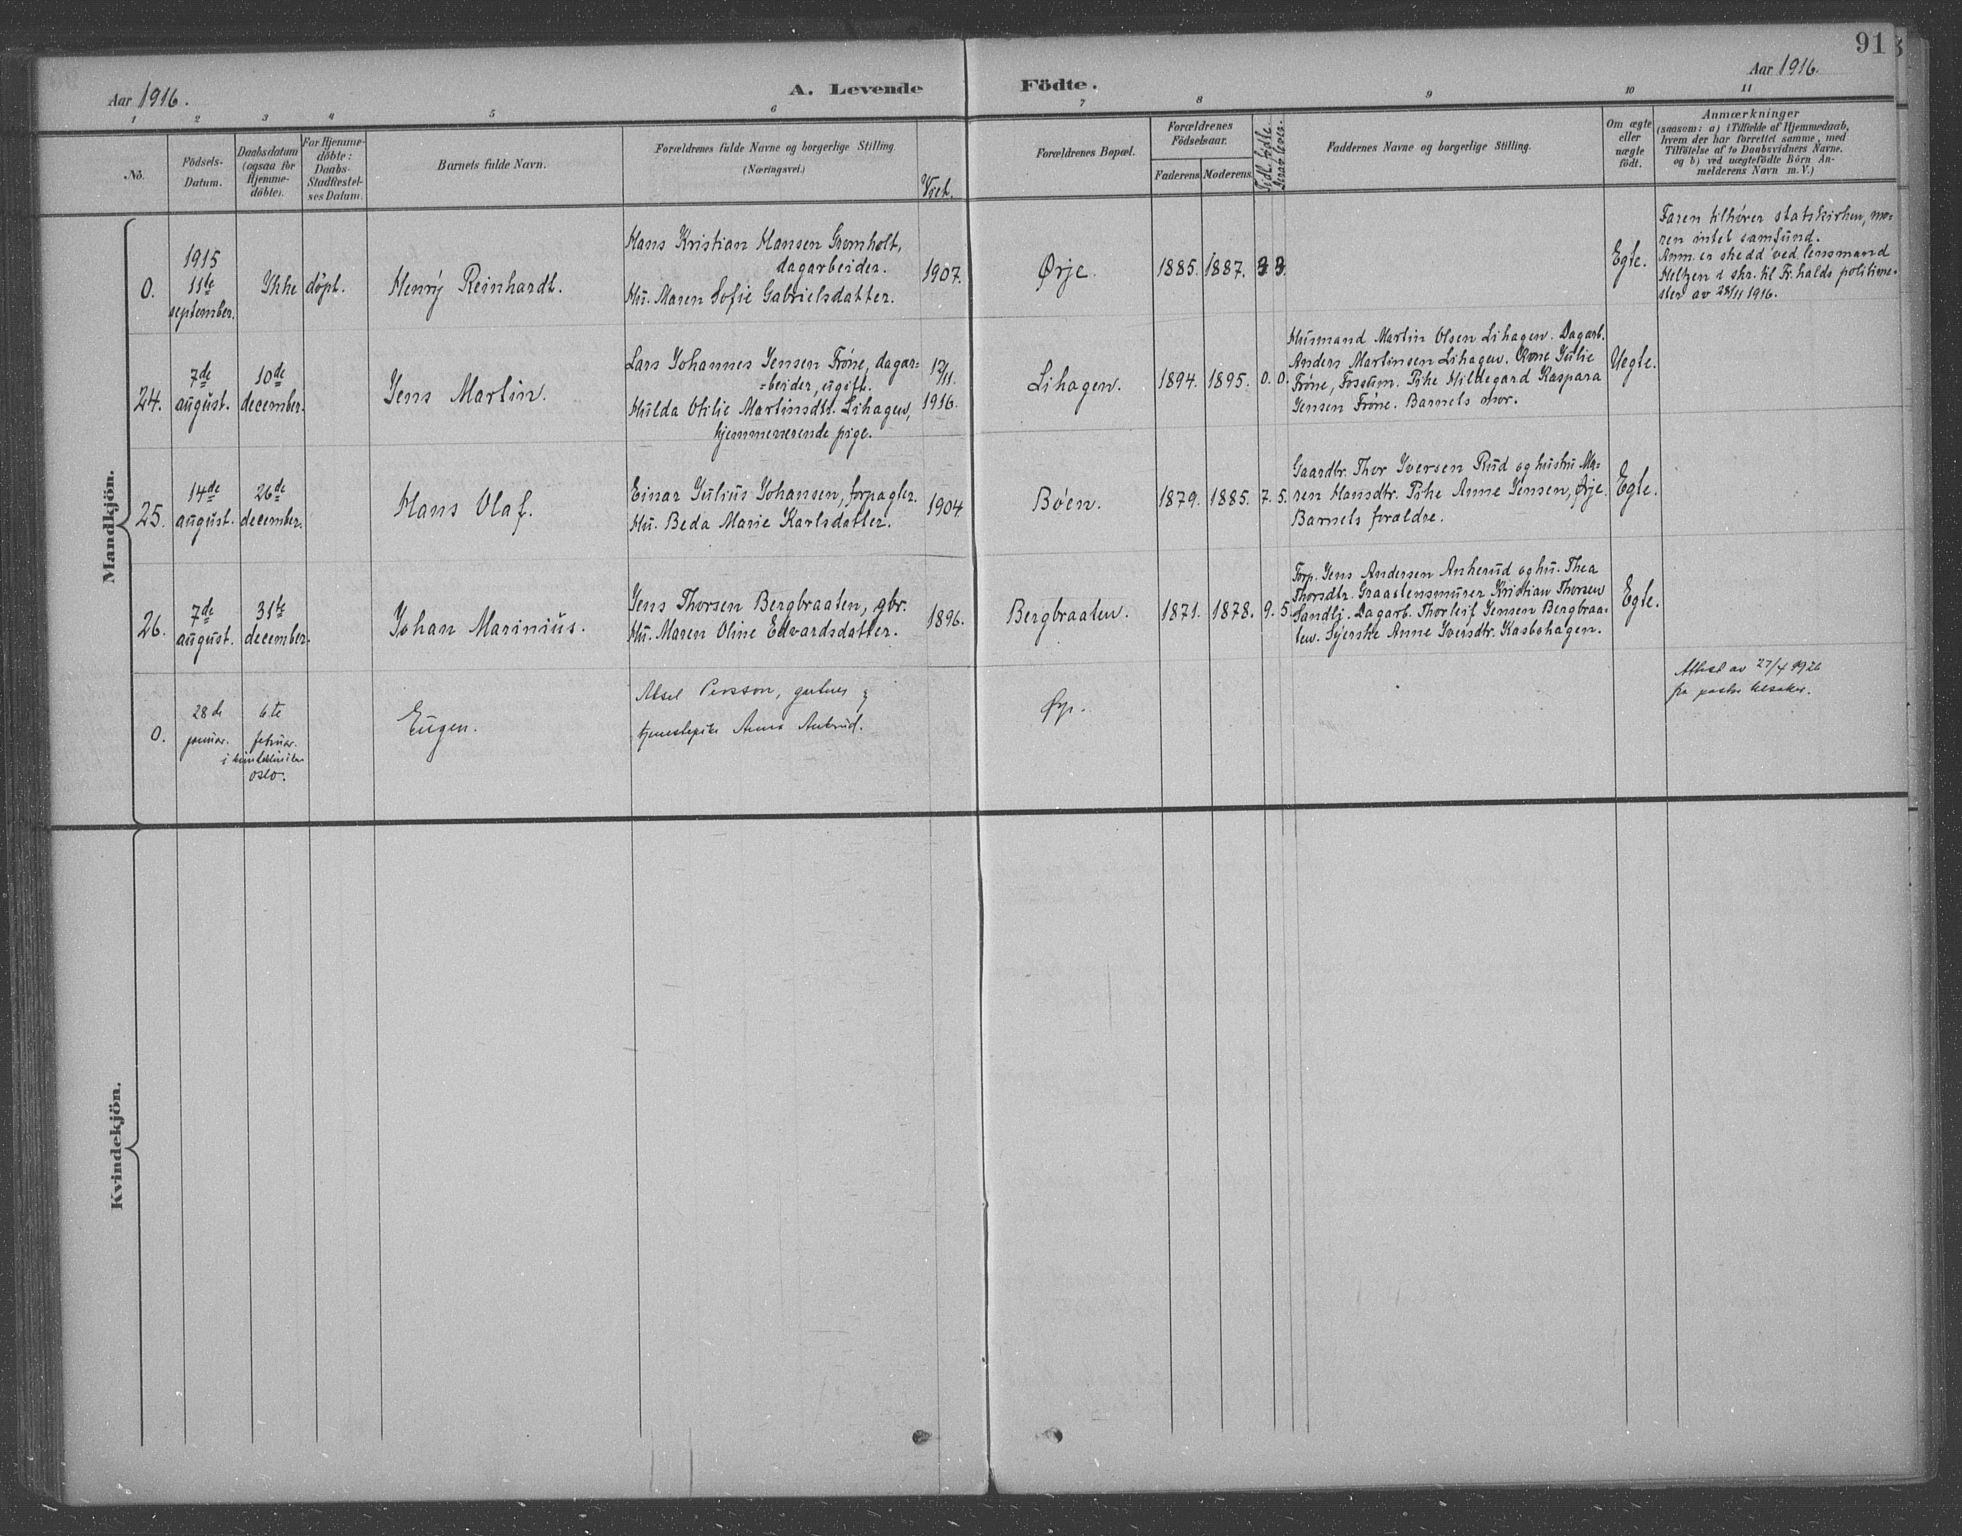 91
Aar 1916.
A. Levende Födte.
Aar 1916.
1 2 3 4 5 6 7 8 9 10 11
No.
Födsels-
Datum.
Daabsdatum
(ogsaa for
Hjemme-
döbte).
For Hjemme-
döbte:
Daabs-
Stadfæstel-
ses Datum.
Barnets fulde Navn.
Forældrenes fulde Navne og borgerlige Stilling
(Næringsvei.)
Viet.
Forældrenes Bopæl.
Forældrenes
Födselsaar.
Faderens. Moderens.
Tidl. födte.
Derav lever.
Faddernes Navne og borgerlige Stilling.
Om ægte
eller
uægte
födt.
Anmærkninger
(saasom: a) i Tilfælde af Hjemmedaab,
hvem der har forrettet samme, med
Tilföielse af to Daabsvidners Navne,
og b) ved uegtefödte Börn An-
melderens Navn m. V.)
Mandkjön.
0.
1915
11te
september.
Ikke döpt.
Henrÿ Reinhardt.
Hans Kristian Hansen Gromholt,
dagarbeider.
Hu. Maren Sofie Gabrielsdatter.
1907.
Ørje.
1885. 1887. 3 3
Egte.
Faren tilhører statskirken, mo-
ren intet samfund.
Anm. er skedd ved lensmand
Heltzen i skr. til Fr.halds politime-
ster av 28/11 1916.
24.
7de
august.
10de
december.
Jens Martin.
Lars Johannes Jensen Fröne, dagar-
beider, ugift.
Hulda Otilie Martinsdtr. Lihagen,
hjemmeværende pige.
12/11.
1916.
Lihagen.
1894. 1895. 0. 0.
Husmand Martin Olsen Lihagen. Dagarb.
Anders Martinsen Lihagen. Kone Julie
Fröne, Fossum. Pike Hildegard Kaspara
Jensen Fröne. Barnets mor.
Uegte.
25.
14de
august.
26de
december.
Hans Olaf.
Einar Julius Johansen, forpagter.
Hu. Beda Marie Karlsdatter.
1904
Böen.
1879. 1885. 7. 5.
Gaardbr. Thor Iversen Rud og hustru Ma-
ren Hansdtr. Pike Anne Jensen, Ørje.
Barnets foræ̈ldre.
Egte.
26.
7de
august.
31te
december.
Johan Marinius.
Jens Thorsen Bergbraaten, gbr.
Hu. Maren Oline Edvardsdatter.
1896.
Bergbraaten.
1871. 1878. 9. 5
Forp. Jens Andersen Ankerud og hu. Thea
Thorsdtr. Graastensmurer Kristian Thorsen
Sandtj. Dagarb. Thorleif Jensen Bergbraa-
ten. Syerske Anne Iversdtr. Kasbohagen.
Egte.
0.
28de
januar.
6te
februar.
i
oslo.
Eugen.
Aksel Persson, gartner
tjenestepike Anna Ankerud.
Attest av 27/4 1926
fra
Kvindekjön.